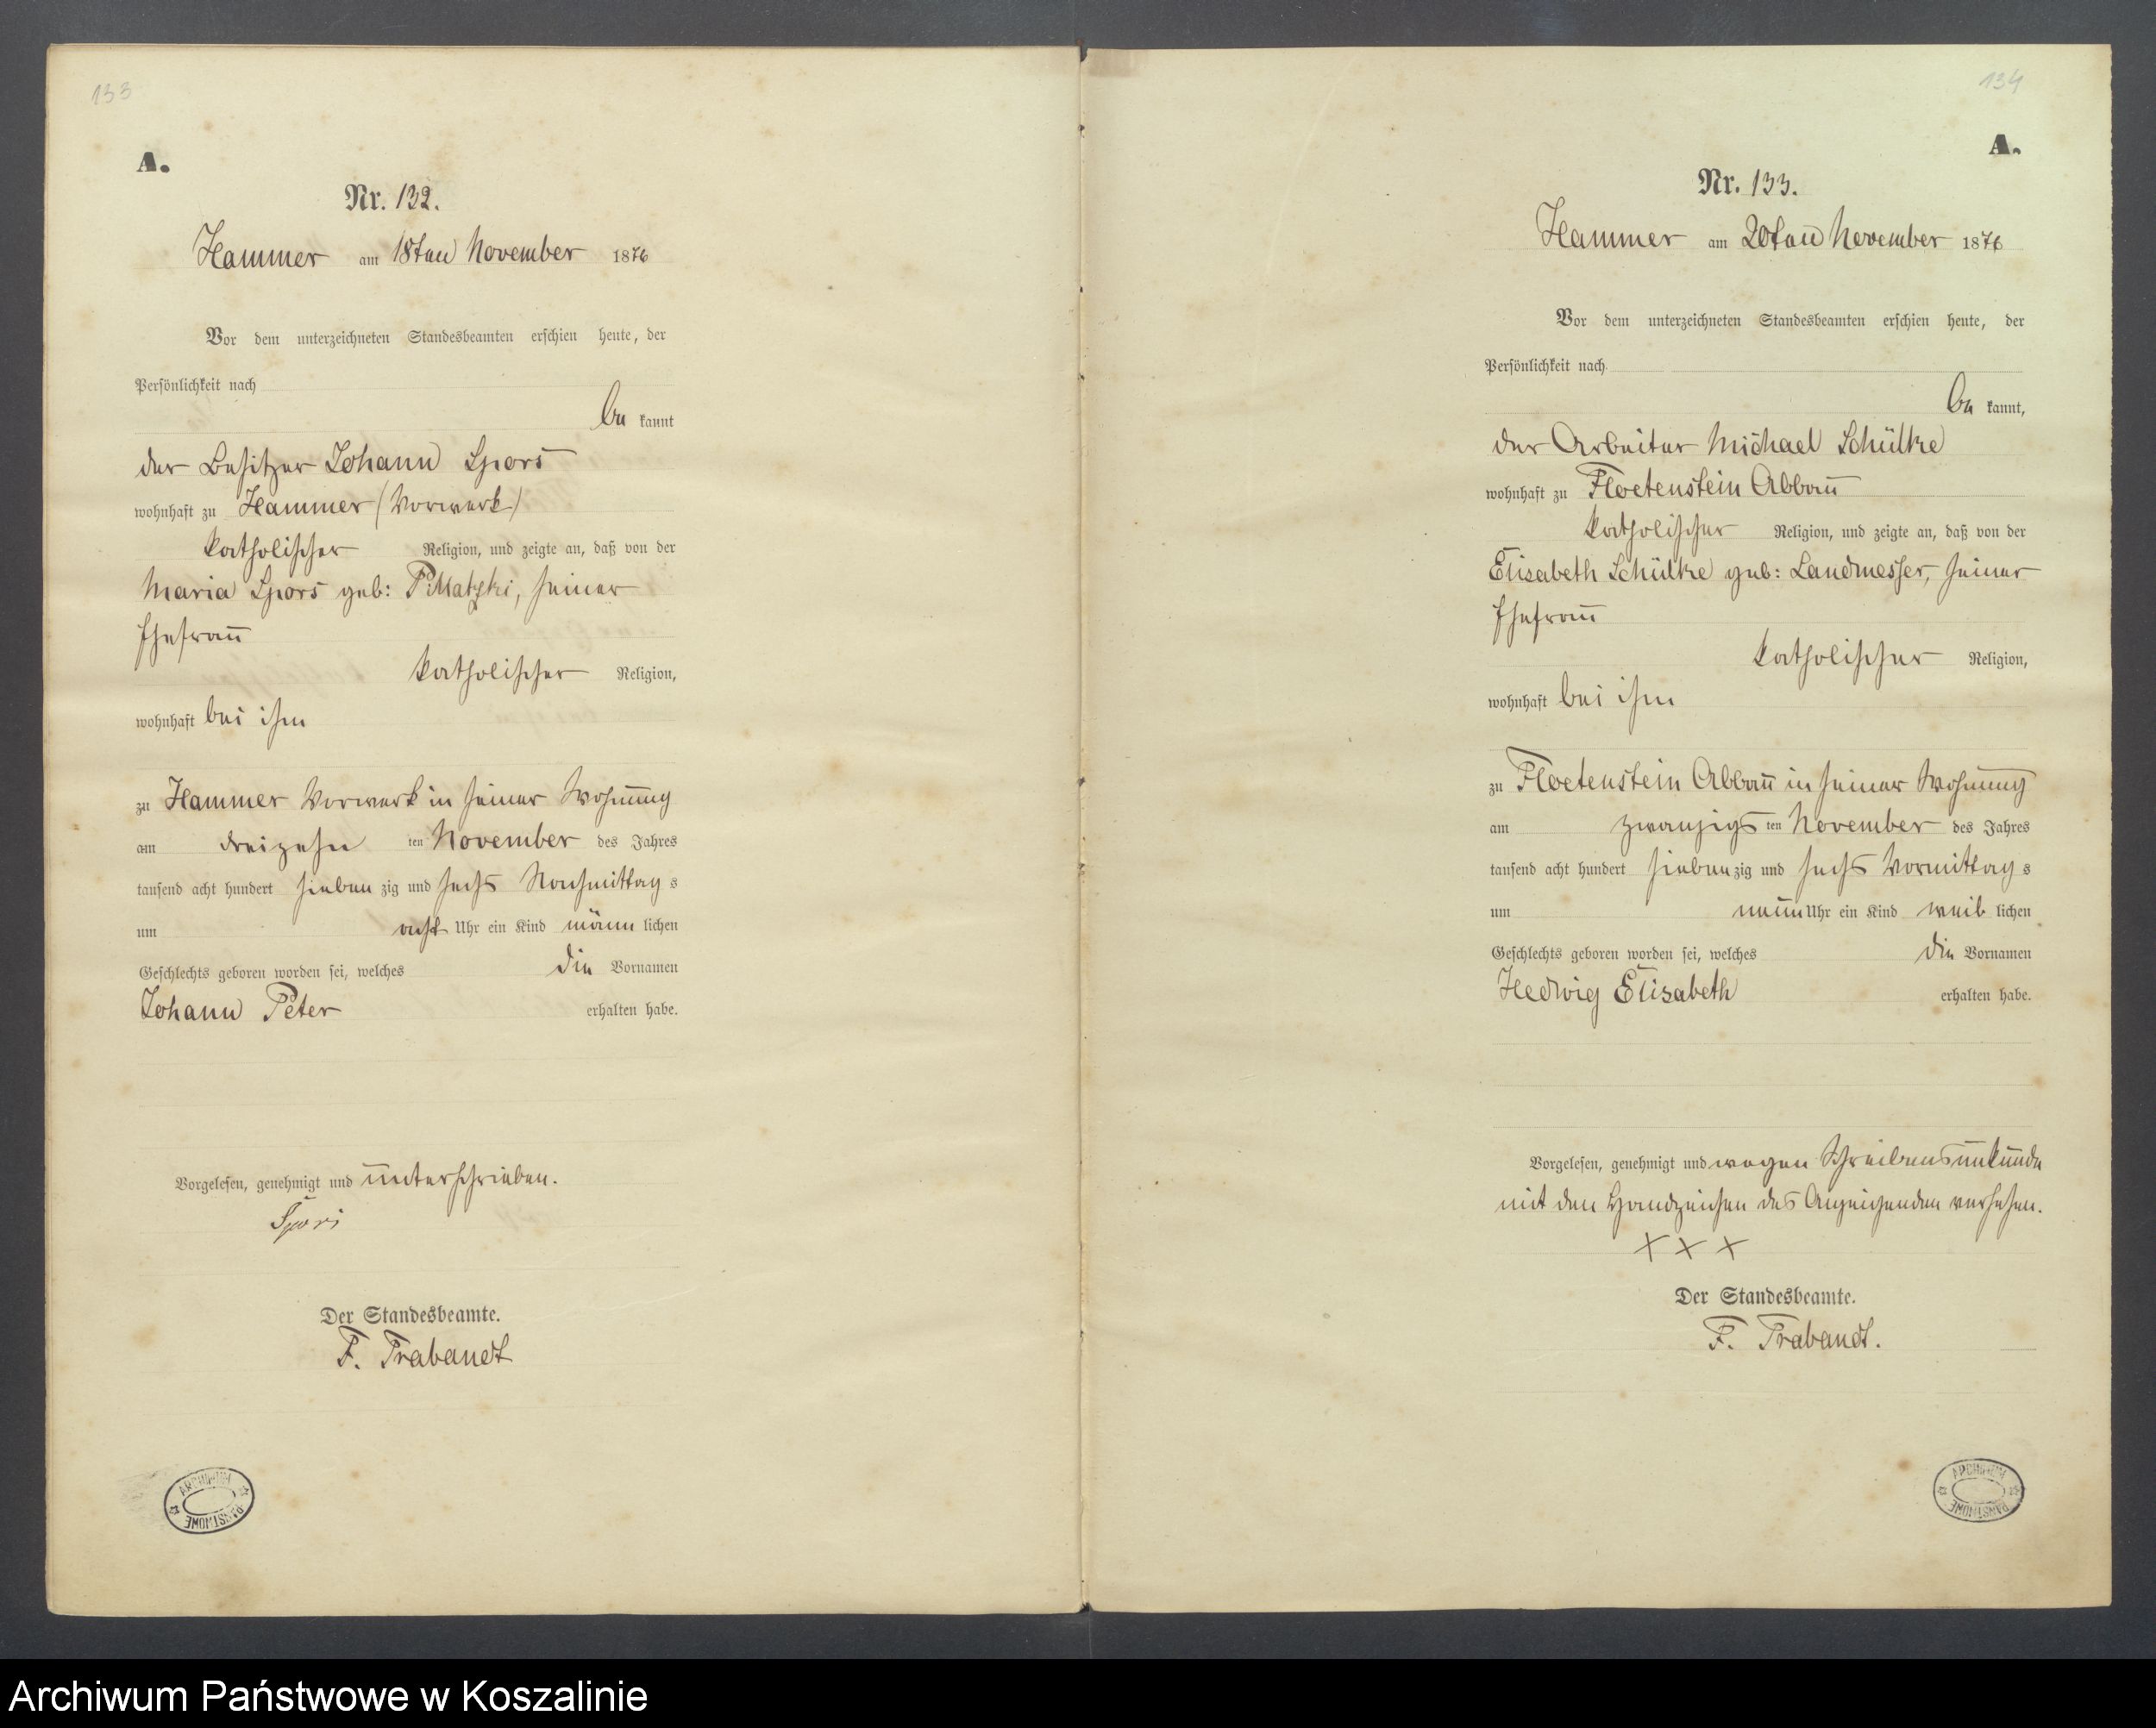 133
A.
Nr. 132.
Hammer am 18ten November 1876
Vor dem unterzeichneten Standesbeamten erschien heute, der
Persönlichkeit nach
be kannt
der Besitzer Johann Spors
wohnhaft zu Hammer (Vorwerk)
katholischer Religion, und zeigte an, daß von der
Maria Spors geb: , seiner
Ehefrau
katholischer Religion,
wohnhaft bei ihm
zu Hammer Vorwerk in seiner Wohnung
am dreizehn ten November des Jahres
tausend acht hundert sieben zig und sechs Nachmittag s
um acht Uhr ein Kind männ lichen
Geschlechts geboren worden sei, welches die Vornamen
Johann Peter erhalten habe.
Vorgelesen, genehmigt und unterschrieben.
Spors
Der Standesbeamte.
F. Trabandt
ARCHIWUM PAŃSTWOWE
134
A.
Nr. 133.
Hammer am 20ten November 1876
Vor dem unterzeichneten Standesbeamten erschien heute, der
Persönlichkeit nach
be kannt,
der Arbeiter Michael Schülke
wohnhaft zu Floetenstein Abbau
katholischer Religion, und zeigte an, daß von der
Elisabeth Schülke geb: Landmesser, seiner
Ehefrau
katholischer Religion,
wohnhaft bei ihm
zu Floetenstein Abbau in seiner Wohnung
am zwanzigs ten November des Jahres
tausend acht hundert sieben zig und sechs Vormittag s
um neun Uhr ein Kind weib lichen
Geschlechts geboren worden sei, welches die Vornamen
Hedwig Elisabeth erhalten habe.
Vorgelesen, genehmigt und wegen Schreibensunkunde
mit den Handzeichen des Anzeigenden versehen.
X X X
Der Standesbeamte.
F. Trabandt.
ARCHIWUM PAŃSTWOWE
Archiwum Państwowe w Koszalinie